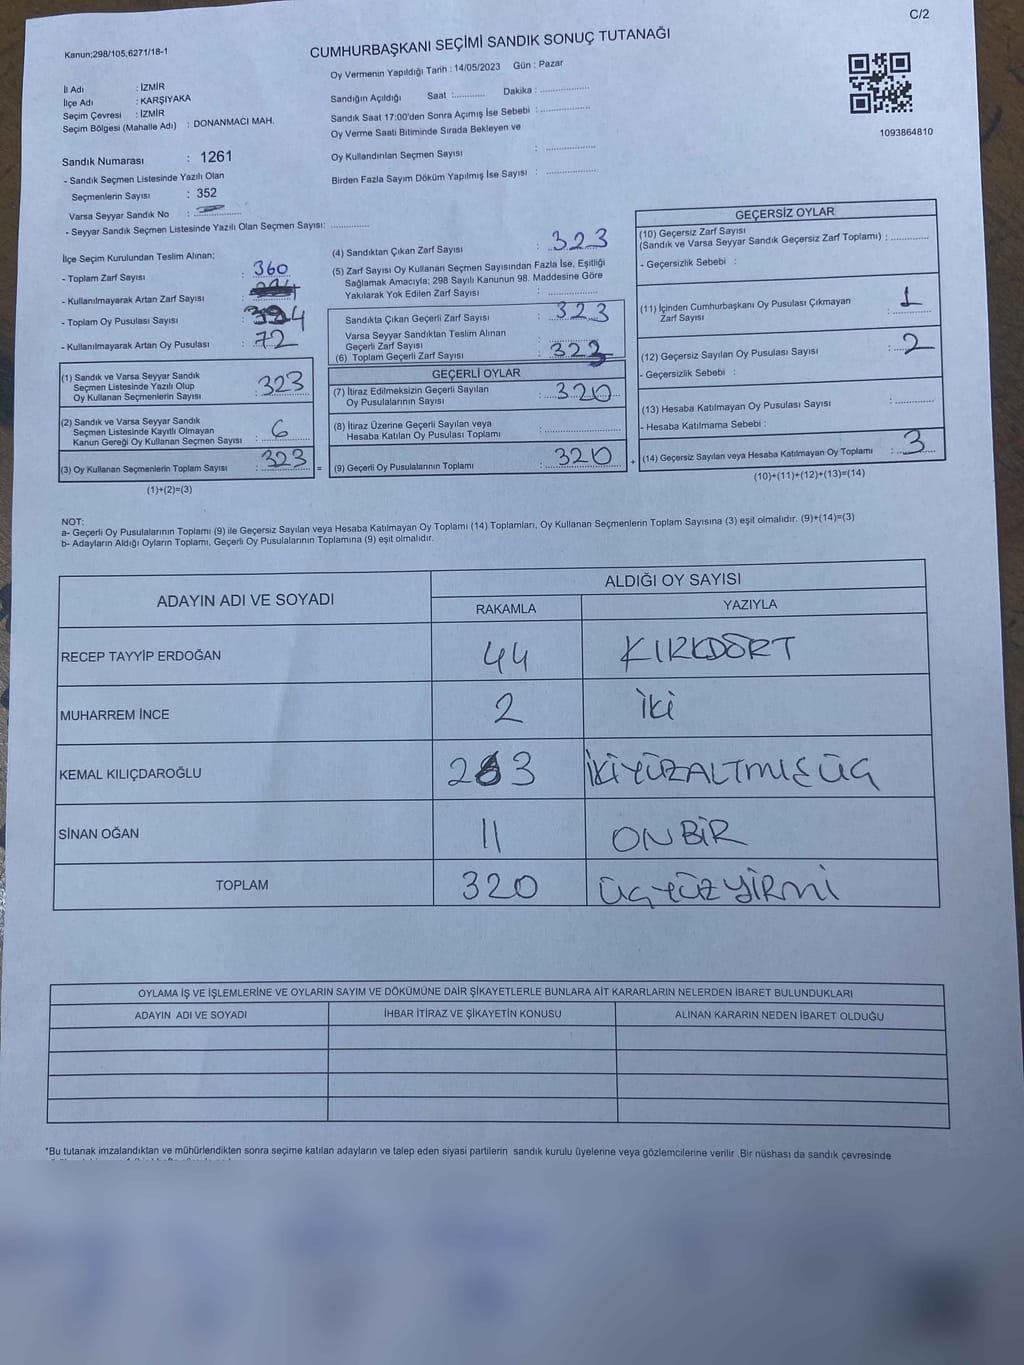 C/2
Kanun;298/105;6271/18-1
CUMHURBAŞKANI SEÇİMİ SANDIK SONUÇ TUTANAĞI
Oy Vermenin Yapıldığı Tarih : 14/05/2023 Gün : Pazar
İl Adı : İZMİR
İlçe Adı : KARŞIYAKA
Seçim Çevresi : İZMİR
Seçim Bölgesi (Mahalle Adı) : DONANMACI MAH.
Sandığın Açıldığı Saat :........... Dakika : .....................
Sandık Saat 17:00'den Sonra Açımış İse Sebebi : .................
Oy Verme Saati Bitiminde Sırada Bekleyen ve
Oy Kullandırılan Seçmen Sayısı : .................
Birden Fazla Sayım Döküm Yapılmış İse Sayısı : .................
1093864810
Sandık Numarası : 1261
- Sandık Seçmen Listesinde Yazılı Olan
Seçmenlerin Sayısı : 352
Varsa Seyyar Sandık No :
- Seyyar Sandık Seçmen Listesinde Yazılı Olan Seçmen Sayısı: .............
İlçe Seçim Kurulundan Teslim Alınan;
- Toplam Zarf Sayısı : 360
- Kullanılmayarak Artan Zarf Sayısı :
- Toplam Oy Pusulası Sayısı :
- Kullanılmayarak Artan Oy Pusulası : 72
(1) Sandık ve Varsa Seyyar Sandık
Seçmen Listesinde Yazılı Olup
Oy Kullanan Seçmenlerin Sayısı : 323
(2) Sandık ve Varsa Seyyar Sandık
Seçmen Listesinde Kayıtlı Olmayan
Kanun Gereği Oy Kullanan Seçmen Sayısı : 6
(3) Oy Kullanan Seçmenlerin Toplam Sayısı : 323 =
(1)+(2)=(3)
(4) Sandıktan Çıkan Zarf Sayısı : 323
(5) Zarf Sayısı Oy Kullanan Seçmen Sayısından Fazla İse, Eşitliği
Sağlamak Amacıyla; 298 Sayılı Kanunun 98. Maddesine Göre
Yakılarak Yok Edilen Zarf Sayısı : .............
Sandıkta Çıkan Geçerli Zarf Sayısı : 323
Varsa Seyyar Sandıktan Teslim Alınan
Geçerli Zarf Sayısı :
(6) Toplam Geçerli Zarf Sayısı : 323
GEÇERLİ OYLAR
(7) İtiraz Edilmeksizin Geçerli Sayılan
Oy Pusulalarının Sayısı : 320
(8) İtiraz Üzerine Geçerli Sayılan veya
Hesaba Katılan Oy Pusulası Toplamı : .............
(9) Geçerli Oy Pusulalarının Toplamı : 320 +
GEÇERSİZ OYLAR
(10) Geçersiz Zarf Sayısı
(Sandık ve Varsa Seyyar Sandık Geçersiz Zarf Toplamı) : ..........
- Geçersizlik Sebebi :
(11) İçinden Cumhurbaşkanı Oy Pusulası Çıkmayan
Zarf Sayısı : 1
(12) Geçersiz Sayılan Oy Pusulası Sayısı : 2
- Geçersizlik Sebebi :
(13) Hesaba Katılmayan Oy Pusulası Sayısı : ..........
- Hesaba Katılmama Sebebi :
(14) Geçersiz Sayılan veya Hesaba Katılmayan Oy Toplamı : 3
(10)+(11)+(12)+(13)=(14)
NOT:
a- Geçerli Oy Pusulalarının Toplamı (9) ile Geçersiz Sayılan veya Hesaba Katılmayan Oy Toplamı (14) Toplamları, Oy Kullanan Seçmenlerin Toplam Sayısına (3) eşit olmalıdır. (9)+(14)=(3)
b- Adayların Aldığı Oyların Toplamı, Geçerli Oy Pusulalarının Toplamına (9) eşit olmalıdır.
ADAYIN ADI VE SOYADI ALDIĞI OY SAYISI
RAKAMLA YAZIYLA
RECEP TAYYİP ERDOĞAN 44 KIRKDÖRT
MUHARREM İNCE 2 İKİ
KEMAL KILIÇDAROĞLU 263 İKİYÜZALTMIŞÜÇ
SİNAN OĞAN 11 ONBİR
TOPLAM 320 ÜÇYÜZYİRMİ
OYLAMA İŞ VE İŞLEMLERİNE VE OYLARIN SAYIM VE DÖKÜMÜNE DAİR ŞİKAYETLERLE BUNLARA AİT KARARLARIN NELERDEN İBARET BULUNDUKLARI
ADAYIN ADI VE SOYADI İHBAR İTİRAZ VE ŞİKAYETİN KONUSU ALINAN KARARIN NEDEN İBARET OLDUĞU
*Bu tutanak imzalandıktan ve mühürlendikten sonra seçime katılan adayların ve talep eden siyasi partilerin sandık kurulu üyelerine veya gözlemcilerine verilir .Bir nüshası da sandık çevresinde